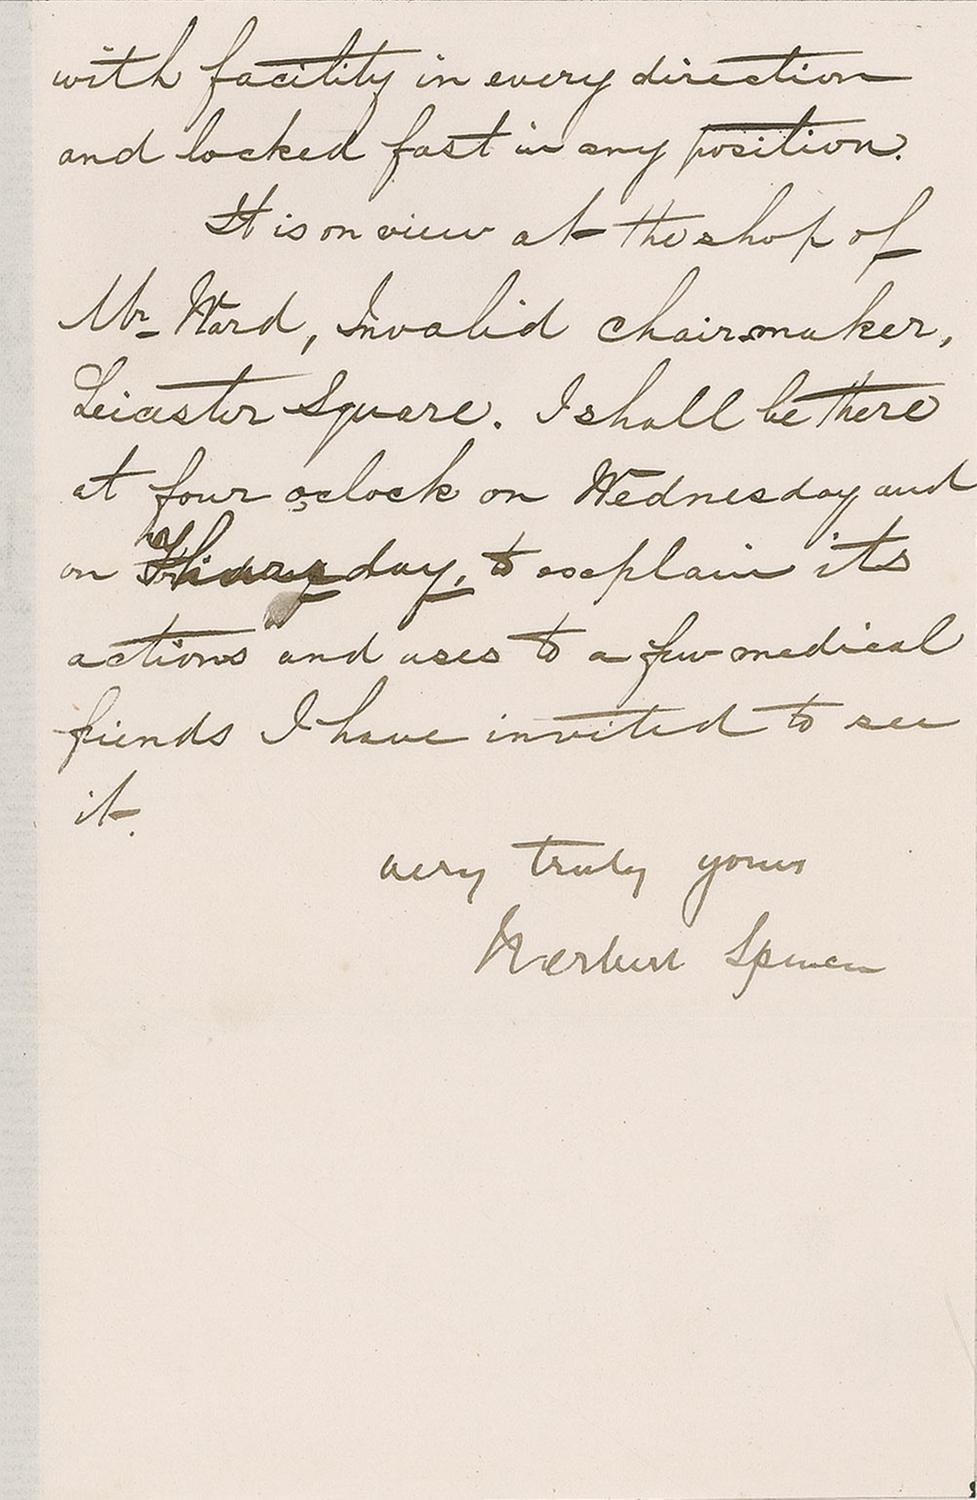 with facility in every direction
and locked fast in any position.
It is on view at the shop of
Mr. Ward, Invalid chair-maker,
Leicester Square. I shall be there
at four oclock on Wednesday and
on Thursday, to explain its
actions and uses to a few medical
friends I have invited to see
it.
very truly yours
Herbert Spencer